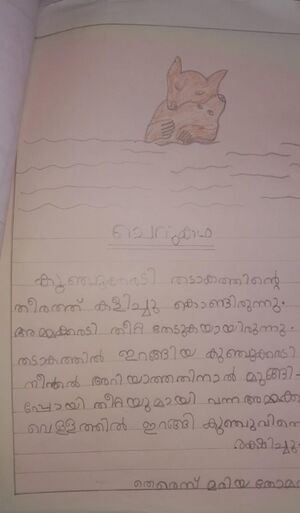 ചെറുകഥ
കുഞ്ഞുകരടി തടാകത്തിന്റെ
തീരത്ത് കളിച്ചു കൊണ്ടിരുന്നു.
അമ്മക്കരടി തീറ്റ തേടുകയായിരുന്നു.
തടാകത്തിൽ ഇറങ്ങിയ കുഞ്ഞുകരടി
നീന്തൽ അറിയാത്തതിനാൽ മുങ്ങി-
പ്പോയി തീറ്റയുമായി വന്ന അമ്മക്ക
വെള്ളത്തിൽ ഇറങ്ങി കുഞ്ഞുവിനെ
രക്ഷിച്ചു.
തെരെസ് മരിയ തോമ